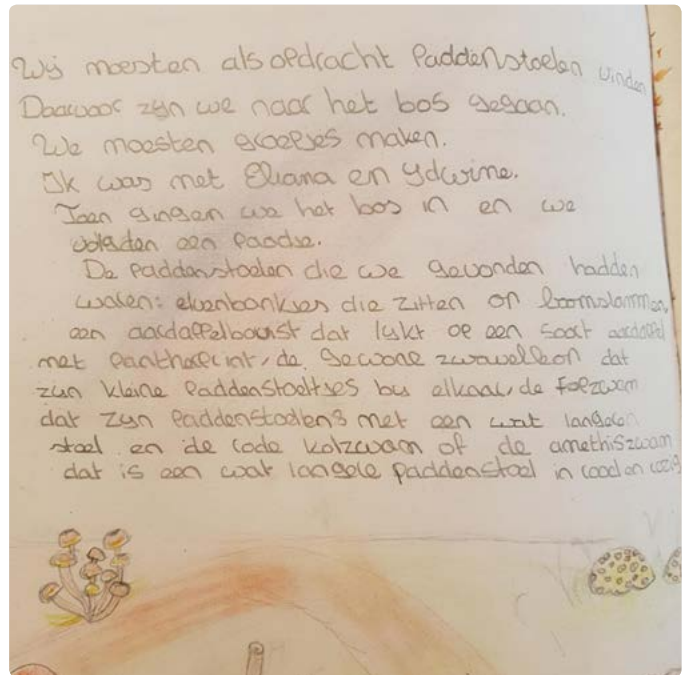 Wij moesten als opdracht Paddenstoelen vinden
Daarvoor zijn we naar het bos gegaan.
We moesten groepjes maken.
Ik was met Eliana en Ydwine.
Toen gingen we het bos in en we
volgden een paadje.
De paddenstoelen die we gevonden hadden
waren: elvenbankjes die zitten op boomstammen,
een aardappelbovist dat lijkt op een soort aardappel
met pantherprint, de gewone zwavelkop dat
zijn kleine paddenstoeltjes bij elkaar, de fopzwam
dat zijn paddenstoelens met een wat langeren
steel en de rode kolzwam of de amethiszwam
dat is een wat langere paddenstoel in rood en rozig